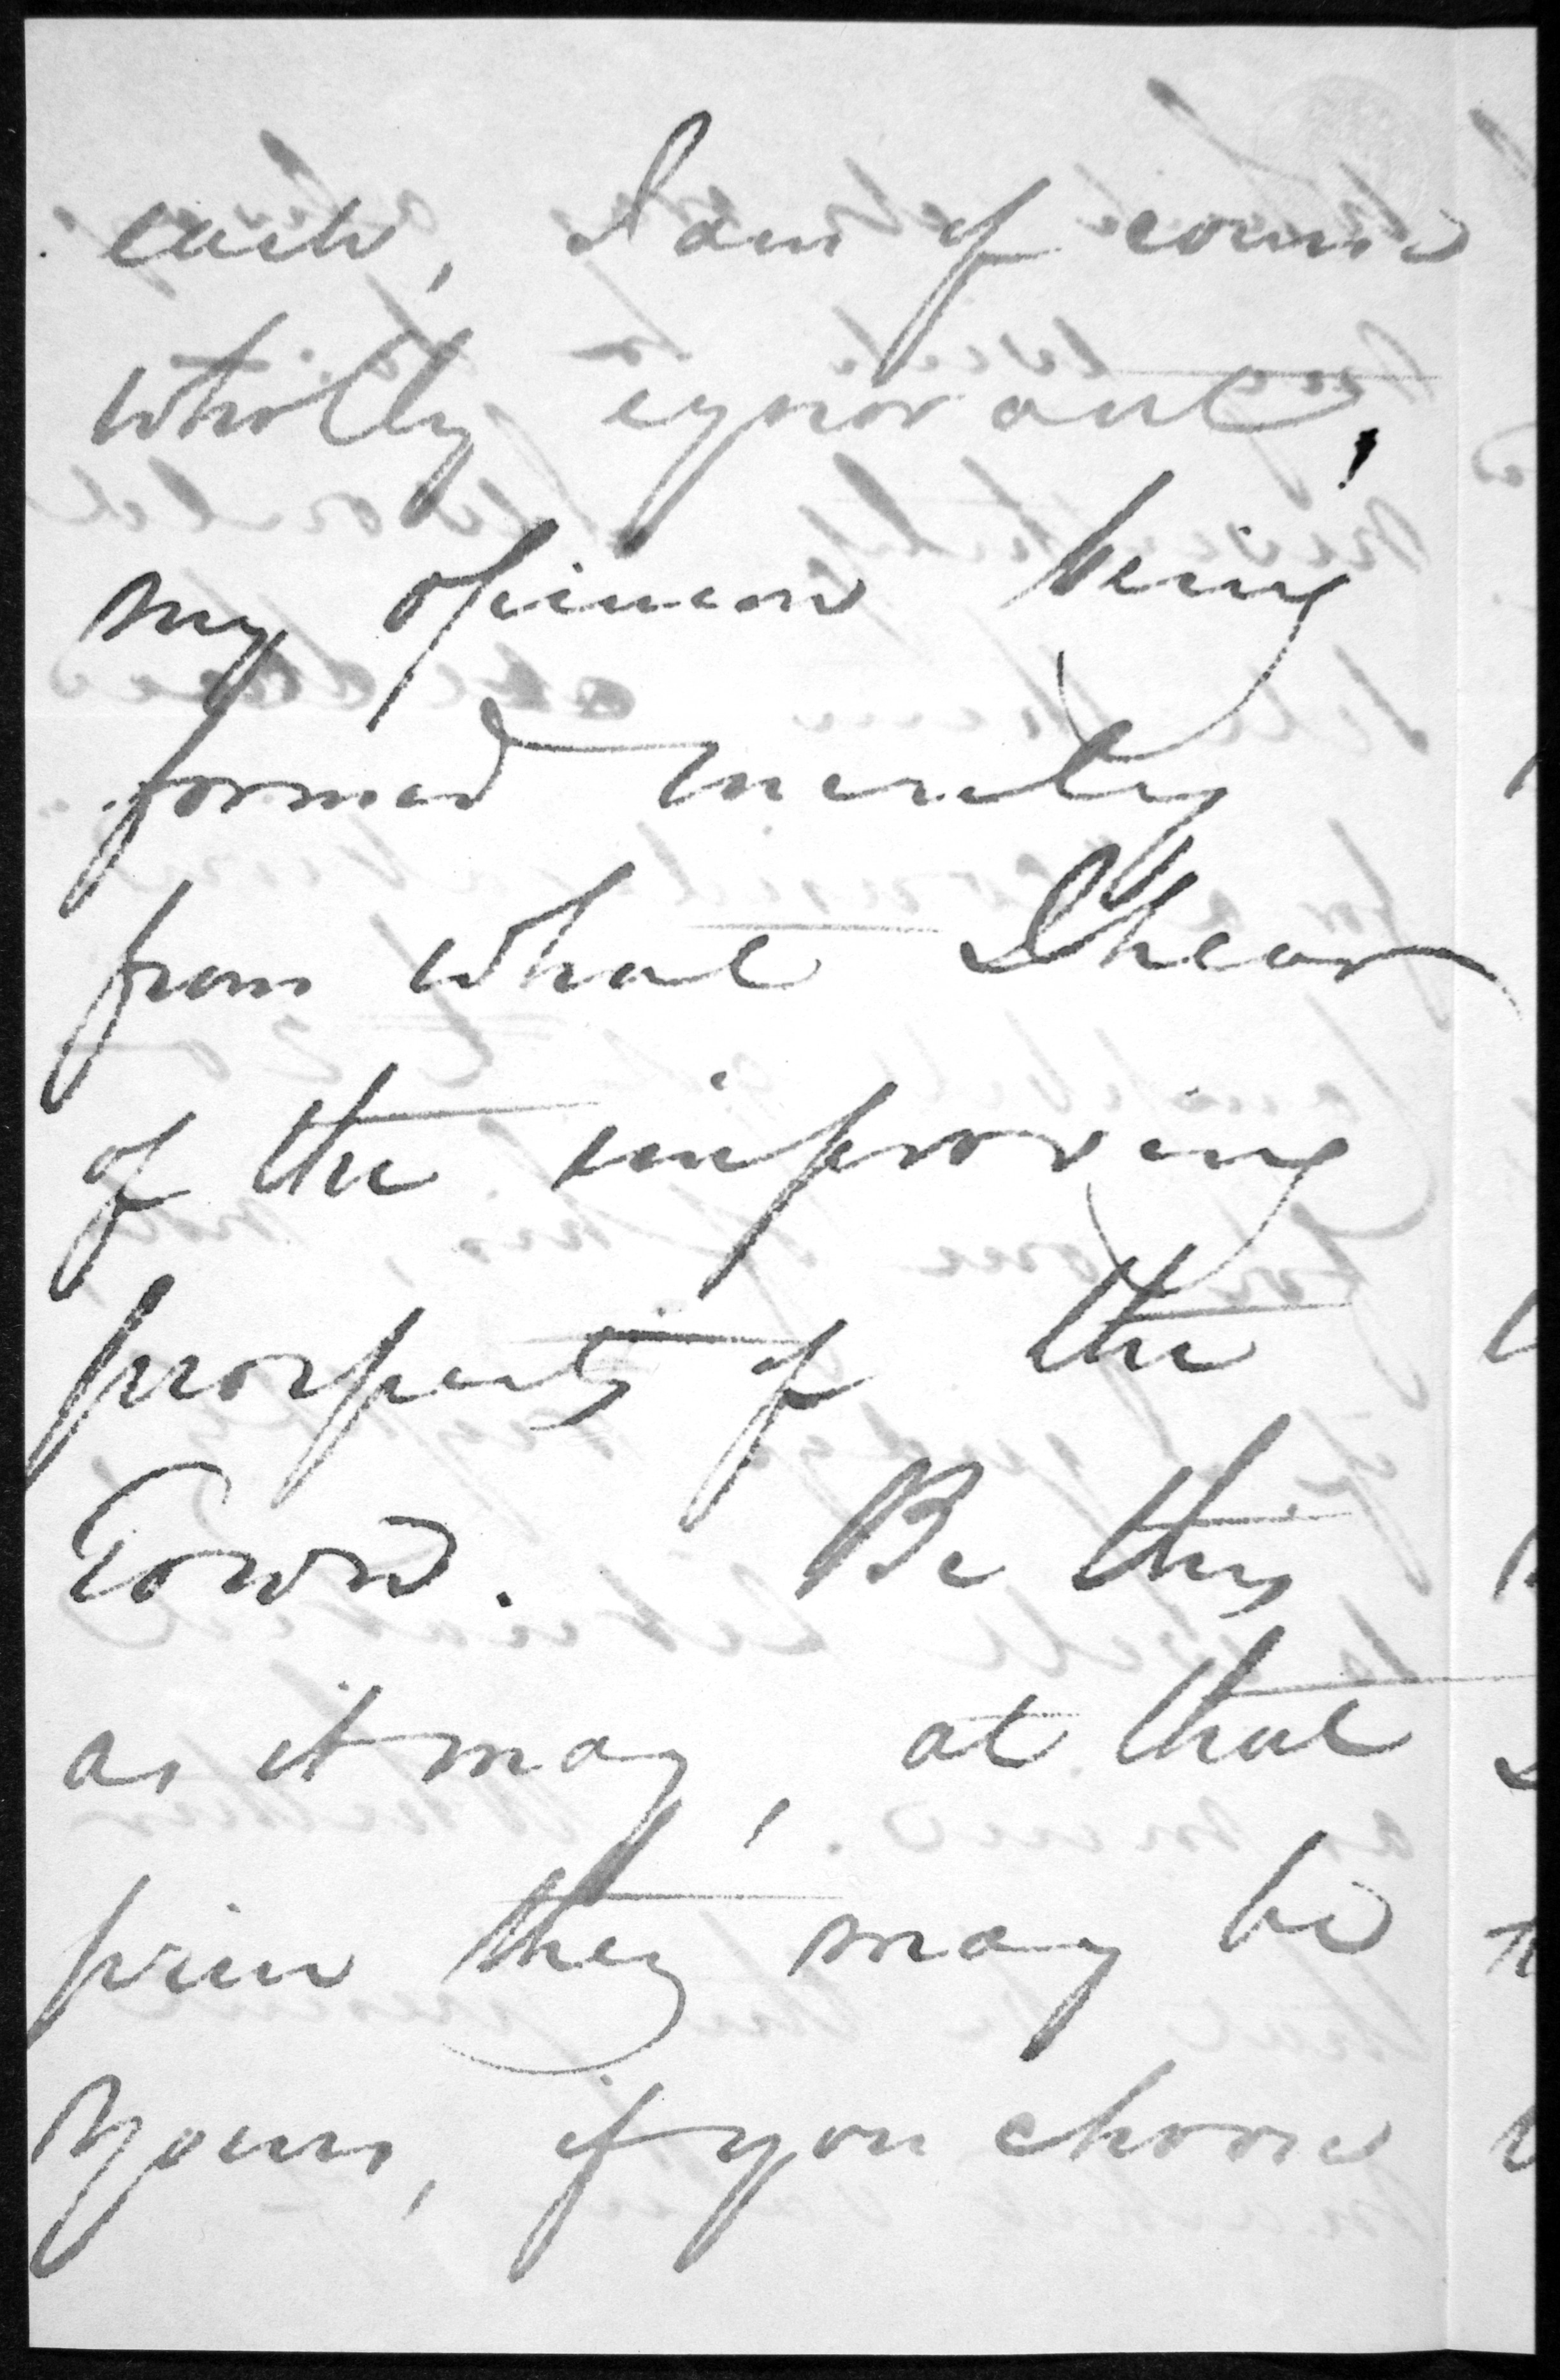 each, I am of course
wholly ignorant,
my opinion being
formed merely
from what I hear
of the improving
prosperity of the
Town. Be this
as it may, at that
price they may be
yours, if you choose